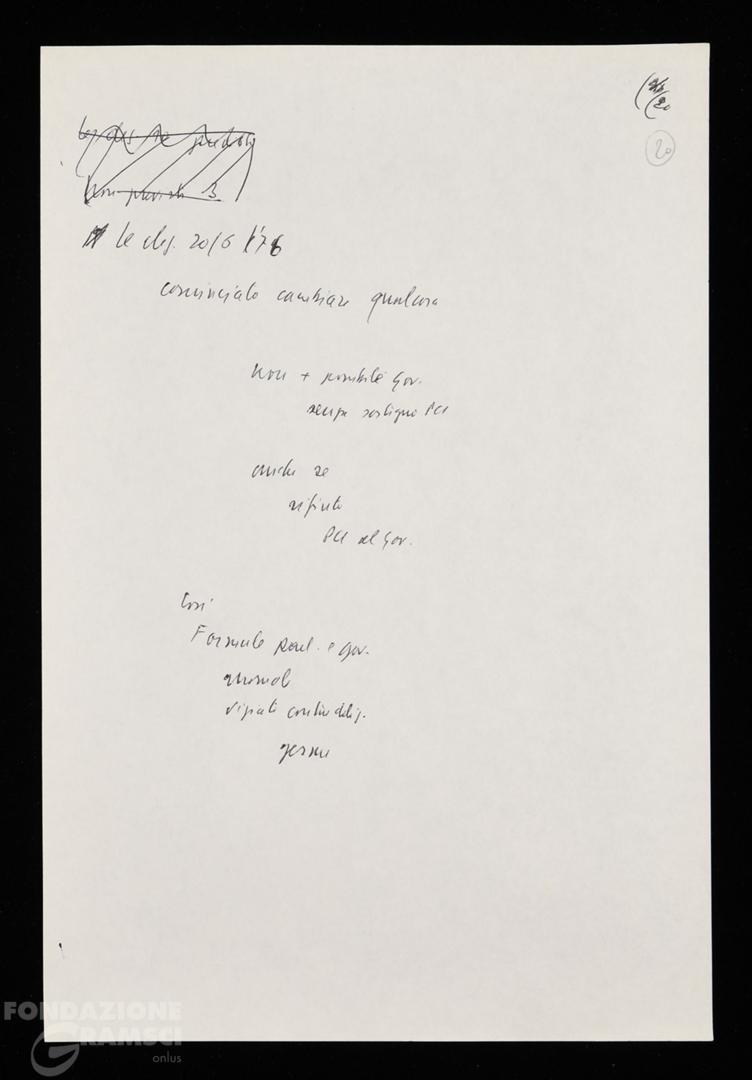 20
20
le elez. 20/6 '76
cominciato cambiare qualcosa
non + possibile gov.
senza sostegno PCI
anche se
rifiuto
PCI al gov.
Così
Formule parl. e gov.
anomale
contraddiz.
germe
FONDAZIONE
GRAMSCI
onlus